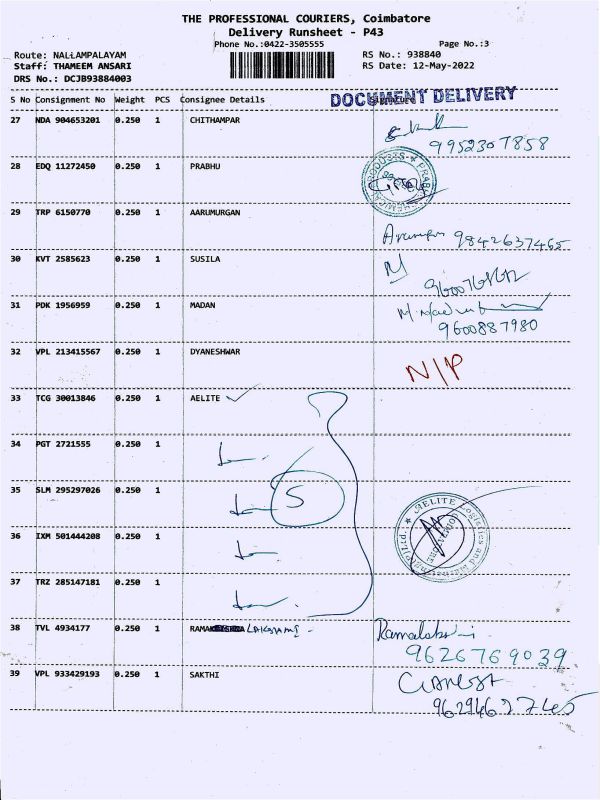 THE PROFESSIONAL COURIERS, Coimbatore
Delivery Runsheet - P43
Phone No.:0422-3505555 Page No.:3
Route: NALLAMPALAYAM RS No.: 938840
Staff: THAMEEM ANSARI RS Date: 12-May-2022
DRS No.: DCJB93884003
DOCUMENT DELIVERY
S No Consignment No Weight PCS Consignee Details Signature
27 NDA 904653201 0.250 1 CHITHAMPAR
9952307858
28 EDQ 11272450 0.250 1 PRABHU
29 TRP 6150770 0.250 1 AARUMURGAN
9842637465
30 KVT 2585623 0.250 1 SUSILA
31 PDK 1956959 0.250 1 MADAN
9600887980
32 VPL 213415567 0.250 1 DYANESHWAR
N/P
33 TCG 30013846 0.250 1 AELITE
34 PGT 2721555 0.250 1
35 SLM 295297026 0.250 1 5
AELITE Logistics and
COIMBATORE
36 IXM 501444208 0.250 1
37 TRZ 285147181 0.250 1
38 TVL 4934177 0.250 1 RAMA LAKSHMI - Ramalakshmi
9626769039
39 VPL 933429193 0.250 1 SAKTHI
9629462745